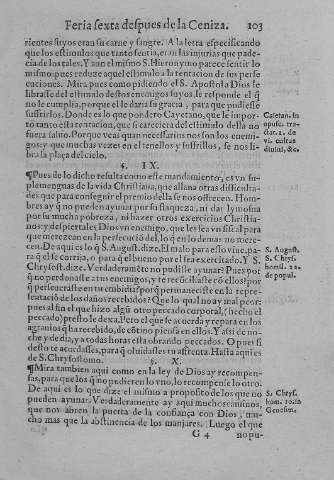 Feria sexta despues de la Ceniza. 103
rientes suyos eran su carne y sangre. A la letra especificando
que los estimulos que tanto sentia, eran las injurias que pade-
cia de los tales. Y aun el mismo S. Hieronymo parece sentir lo
mismo: pues reduze aquel estimulo a la tentacion de sus perse
cuciones. Mira pues como pidiendo el S. Apostol a Dios le
librasse del estimulo destos enemigos suyos, le responde el q̃
no le cumplia, porque el le daria su gracia, para que pudiesse
sufrirlos. Donde es lo que pondero Cayetano, que le impor-
tò tanto esta tentacion, que si careciera del estimulo della no
fuera salvo. Porque veas quan necessarios nos son los enemi-
gos, y que muchas veces en el tenellos y sufrillos, se nos li-
bra la plaça del cielo.
§. IX.
¶Pues de lo dicho resulta como este mandamiento, es vn su-
plemenguas de la vida Christiana, que allana otras dificulta-
des que para conseguir el premio della se nos ofrecen. Hom-
bres ay q̃ no pueden ayunar por su flaqueza, ni dar lymosna
por su mucha pobreza, ni hazer otros exercicios Christia-
nos: y despiertales Dios vn enemigo, que les sea vn fiscal para
que merezcan en la persecució del, lo q̃ en lo demas no mere-
cen. De aqui es lo q̃ S. August. dize. El malo para esto viue, pa-
ra q̃ el se corrija, o para q̃ el bueno por el sea exercitado. Y S.
Chrysost. dize. Verdaderamẽte no pudiste ayunar? Pues por
q̃ no perdonaste a tus enemigos, y te recõciliaste cõ ellos? por
q̃ perseueraste en tu embidia? porq̃ permaneciste en la repre-
sentaciõ de los daños recebidos? Que lo qual no ay mal peor:
pues al fin el que hizo algũ otro peccado corporal, (hecho el
peccado) presto le dexa. Pero el que se acuerda y repara en los
agrauios q̃ ha recebido, de cõtino piensa en ellos. Y assi de no-
che y de dia, y a todas horas està obrando peccados. O pues si
desto te acordasses, para q̃ oluidasses tu afrenta. Hasta aqui es
de S. Chrysostomo. §. X.
¶Mira tambien aqui como en la ley de Dios ay recompen-
sas, para que los q̃ no pudieren lo vno, lo recompense lo otro.
De aqui es lo que dize el mismo a proposito de los que no
pueden ayunar. Verdaderamente ay aqui muchos caminos,
que nos abren la puerta de la confiança con Dios, mu-
cho mas que la abstinencia de los manjares. Luego el que
G 4 nopu-
Caietan. in
opusc. tra-
ctat. 2. de
vi. cultus
diuini, &c.
S. August.
S. Chrys.
homil. 22.
de popul.
S. Chrys.
hom. 10. in
Genesim.